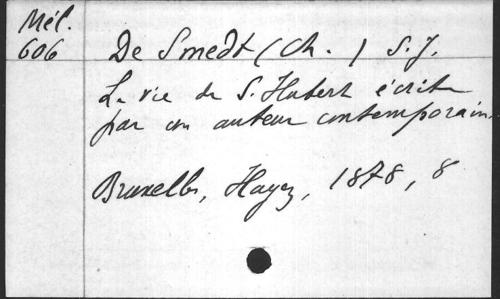 Mél.
606
De Smedt (Ch.) S.J.
La vie de S. Hubert écrite
par un auteur contemporain.
Bruxelles, Hayez, 1878, 8